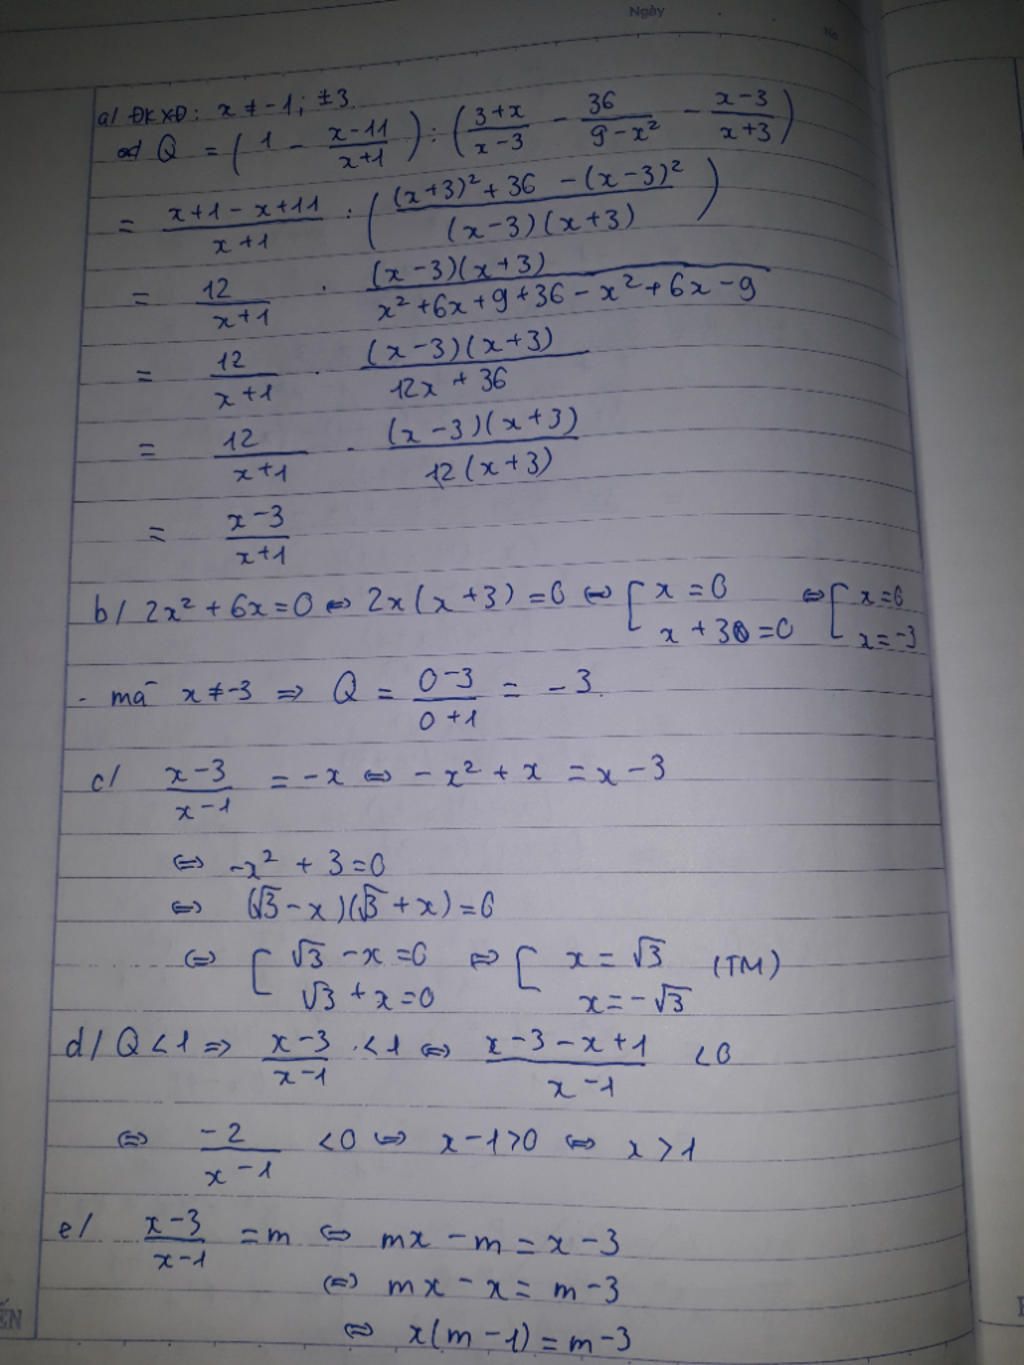 Ngày
No
a/ ĐKXĐ: x ≠ -1; ±3
Q = (1 - (x-11)/(x+1)) : ((3+x)/(x-3) - 36/(9-x²) - (x-3)/(x+3))
= (x+1-x+11)/(x+1) : (((x+3)²+36-(x-3)²)/((x-3)(x+3)))
= 12/(x+1) . ((x-3)(x+3))/(x²+6x+9+36-x²+6x-9)
= 12/(x+1) . ((x-3)(x+3))/(12x+36)
= 12/(x+1) . ((x-3)(x+3))/(12(x+3))
= (x-3)/(x+1)
b/ 2x²+6x=0 ⇔ 2x(x+3)=0 ⇔ [x=0; x+3=0 ⇔ [x=0; x=-3
- mà x≠-3 ⇒ Q = (0-3)/(0+1) = -3.
c/ (x-3)/(x-1) = -x ⇔ -x²+x = x-3
⇔ -x²+3=0
⇔ (√3-x)(√3+x)=0
⇔ [√3-x=0; √3+x=0 ⇔ [x=√3; x=-√3 (TM)
d/ Q<1 ⇒ (x-3)/(x-1) <1 ⇔ (x-3-x+1)/(x-1) <0
⇔ -2/(x-1) <0 ⇔ x-1>0 ⇔ x>1
e/ (x-3)/(x-1) = m ⇔ mx-m=x-3
⇔ mx-x=m-3
⇔ x(m-1)=m-3